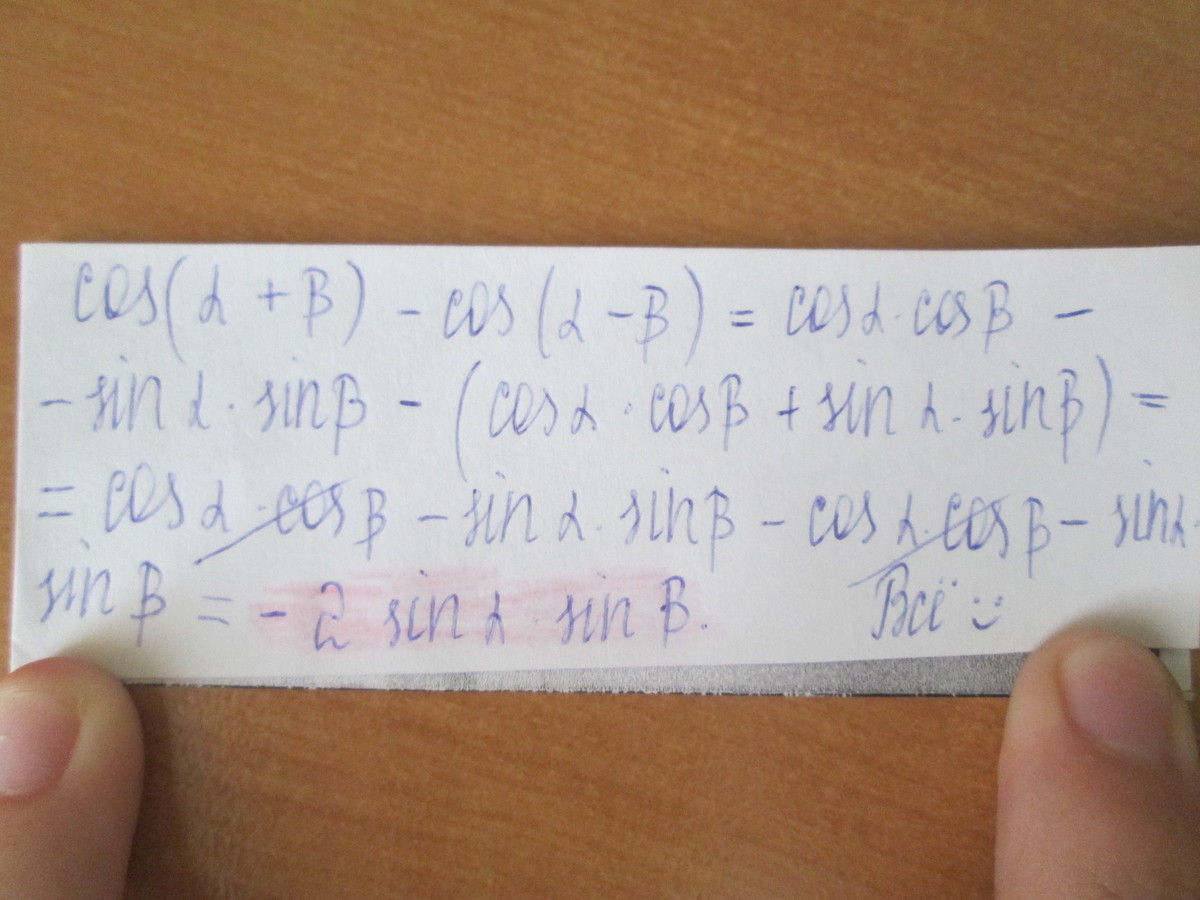 cos(α + β) - cos(α - β) = cosα·cosβ -
- sin α · sinβ - (cosα · cosβ + sin α · sinβ) =
= cos α · cosβ - sin α · sinβ - cos α · cosβ - sinα·
sin β = - 2 sin α · sin β. Всё :)